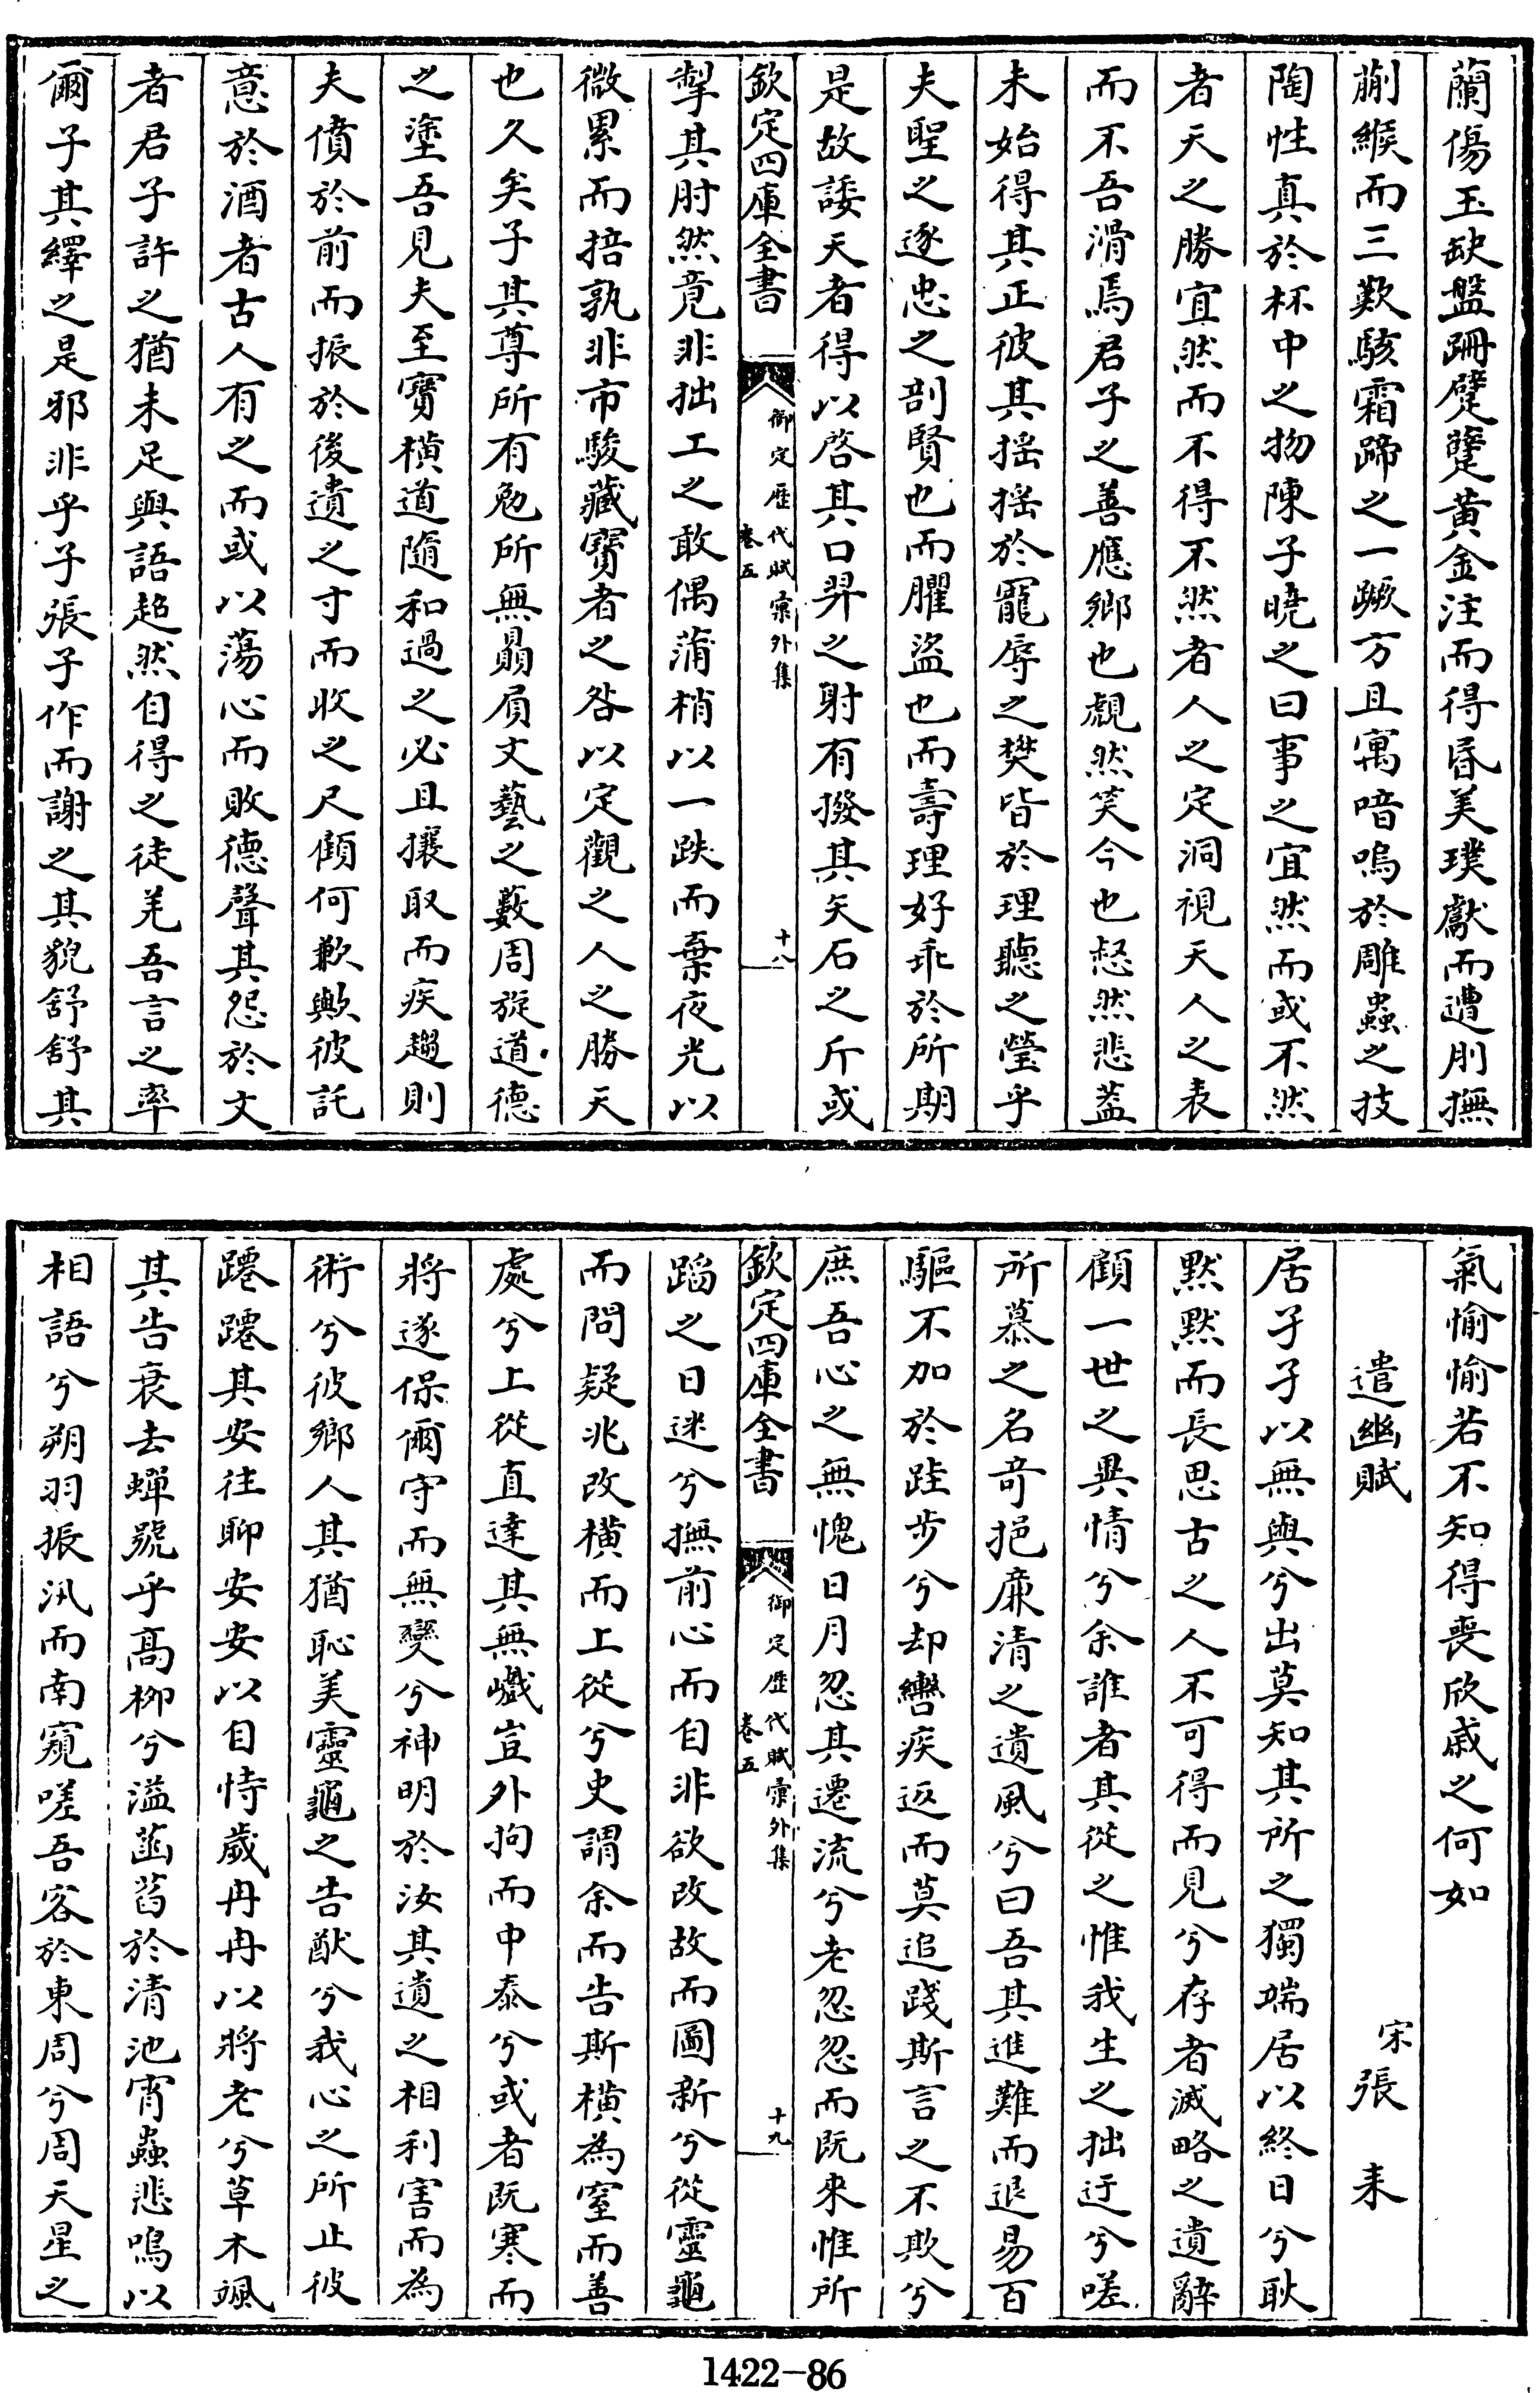 蘭傷玉缺盤跚躄躠黄金注而得昬美璞獻而遭刖撫
蒯緱而三歎駭霜蹄之一蹶方且寓喑嗚於雕蟲之技
陶性真於杯中之物陳子曉之曰事之宜然而或不然
者天之勝宜然而不得不然者人之定洞視天人之表
而不吾滑焉君子之善應鄉也覷然笑今也惄然悲葢
未始得其正彼其揺揺於寵辱之樊皆於理聽之瑩乎
夫聖之逐忠之剖賢也而臞盜也而壽理好乖於所期
是故諉天者得以啓其口羿之射有撥其矢石之斤或
欽定四庫全書 御定歴代賦彙外集 卷五 十八
掣其肘然竟非拙工之敢偶蒲梢以一跌而棄夜光以
微累而掊孰非市駿藏寳者之咎以定觀之人之勝天
也久矣子其尊所有勉所無贔屓文藝之藪周旋道德
之塗吾見夫至寳横道隨和過之必且攘取而疾趨則
夫僨於前而振於後遺之寸而收之尺顧何歉歟彼託
意於酒者古人有之而或以蕩心而敗德聲其怨於文
者君子許之猶未足與語超然自得之徒羌吾言之率
爾子其繹之是邪非乎子張子作而謝之其貌舒舒其
氣愉愉若不知得喪欣戚之何如
遣幽賦 宋張耒
居孑孑以無與兮出莫知其所之獨端居以終日兮耿
默默而長思古之人不可得而見兮存者滅略之遺辭
顧一世之異情兮余誰者其從之惟我生之拙迂兮嗟
所慕之名竒挹亷清之遺風兮曰吾其進難而退易百
驅不加於跬步兮却轡疾返而莫追踐斯言之不欺兮
庶吾心之無愧日月忽其遷流兮老忽忽而既來惟所
欽定四庫全書 御定歴代賦彙外集 卷五 十九
蹈之日迷兮撫前心而自非欲改故而圖新兮從靈龜
而問疑兆改横而上從兮史謂余而告斯横為窒而善
處兮上從直達其無巇豈外拘而中泰兮或者既寒而
將遂保爾守而無變兮神明於汝其遺之相利害而為
術兮彼鄉人其猶恥美靈龜之告猷兮我心之所止彼
蹮蹮其安往聊安安以自恃歲冉冉以將老兮草木颯
其告衰去蟬號乎高柳兮溢菡萏於清池宵蟲悲鳴以
相語兮朔羽振汎而南窺嗟吾客於東周兮周天星之
1422-86